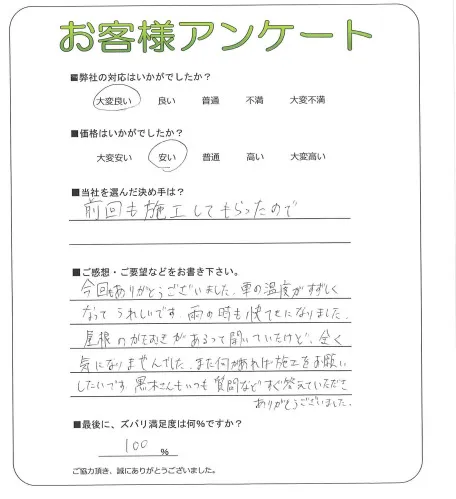 お客様アンケート
■弊社の対応はいかがでしたか?
大変良い 良い 普通 不満 大変不満
■価格はいかがでしたか?
大変安い 安い 普通 高い 大変高い
■当社を選んだ決め手は?
前回も施工してもらったので
■ご感想・ご要望などをお書き下さい。
今回もありがとうございました。車の温度がすずしく
なってうれしいです。雨の時も快てきになりました。
屋根のがたむきがあるって聞いていたけど、全く
気になりませんでした。また何かあれば施工をお願い
したいです。黒木さんもいつも質問などすぐ答えていただき
ありがとうございました。
■最後に、ズバリ満足度は何%ですか?
100 %
ご協力頂き、誠にありがとうございました。